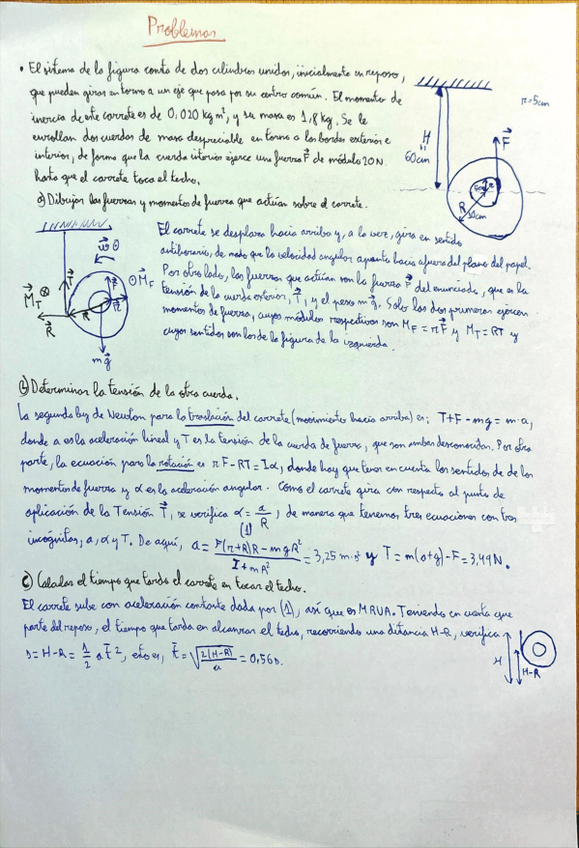 Problemas
• El sistema de la figura consta de dos cilindros unidos, inicialmente en reposo,
que pueden girar en torno a un eje que pasa por su centro común. El momento de
inercia de este carrete es de 0,020 kg m², y su masa es 1,8 kg. Se le
enrollan dos cuerdas de masa despreciable en torno a los bordes exterior e
interior, de forma que la cuerda interior ejerce una fuerza F⃗ de módulo 20N
hasta que el carrete toca el techo.
r=5cm
H
=
60cm
F⃗
5cm
R
10cm
a) Dibujar las fuerzas y momentos de fuerza que actúan sobre el carrete.
El carrete se desplaza hacia arriba y, a la vez, gira en sentido
antihorario, de modo que la velocidad angular apunta hacia afuera del plano del papel.
Por otro lado, las fuerzas que actúan son la fuerza F⃗ del enunciado, que es la
tensión de la cuerda exterior, T⃗, y el peso mg⃗. Solo las dos primeras ejercen
momentos de fuerza, cuyos módulos respectivos son M_F = rF y M_T = RT y
cuyos sentidos son los de la figura de la izquierda.
ω⃗ ⊙
T⃗
⊙ M⃗_F
M⃗_T ⊗
R⃗
mg⃗
b) Determinar la tensión de la otra cuerda.
La segunda ley de Newton para la traslación del carrete (movimiento hacia arriba) es: T+F-mg = m·a,
donde a es la aceleración lineal y T es la tensión de la cuerda de fuera, que son ambas desconocidas. Por otra
parte, la ecuación para la rotación es rF-RT = Iα, donde hay que tener en cuenta los sentidos de de los
momentos de fuerza y α es la aceleración angular. Como el carrete gira con respecto al punto de
aplicación de la Tensión T⃗, se verifica α = a/R, de manera que tenemos tres ecuaciones con tres
incógnitas, a, α y T. De aquí, a (1)= F(r+R)R-mgR²/I+mR² = 3,25 m·s² y T = m(a+g)-F = 3,49 N.
c) Calcular el tiempo que tarda el carrete en tocar el techo.
El carrete sube con aceleración constante dada por (1), así que es MRUA. Teniendo en cuenta que
parte del reposo, el tiempo que tarda en alcanzar el techo, recorriendo una distancia H-R, verifica
s = H-R = 1/2 a t², esto es, t = √(2(H-R)/a) = 0,56s.
H
H-R